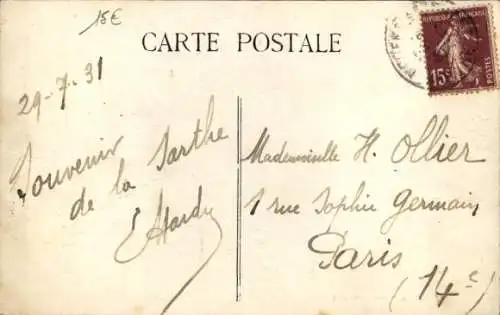 15€
CARTE POSTALE
REPUBLIQUE FRANÇAISE
15c
POSTES
29-7-31
Souvenir
de la Sarthe
E Hardy
Mademoiselle H. Ollier
1 rue Sophie Germain
Paris
(14e)